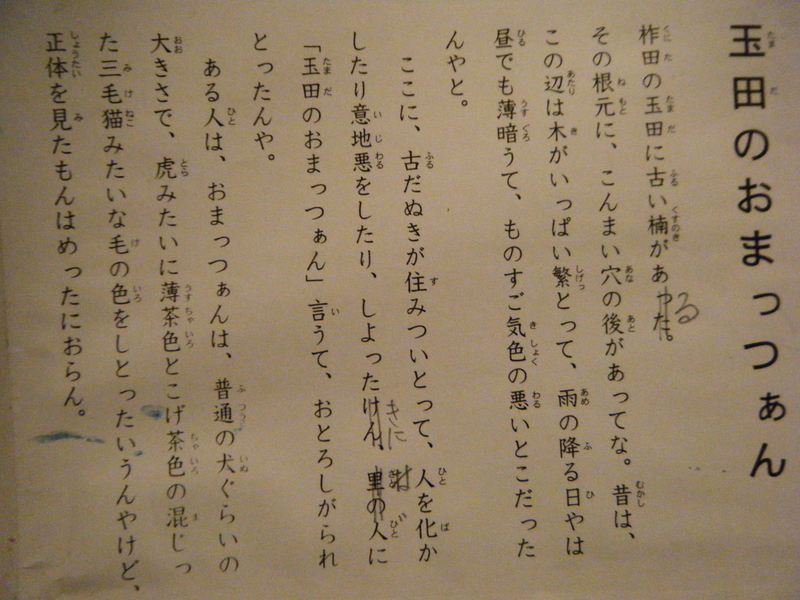 玉田のおまっつぁん
柞田の玉田に古い楠があった。
る
その根元に、こんまい穴の後があってな。昔は、
この辺は木がいっぱい繁とって、雨の降る日やは
昼でも薄暗うて、ものすご気色の悪いとこだった
んやと。
ここに、古だぬきが住みついとって、人を化か
したり意地悪をしたり、しよったけん、里の人に
きに
「玉田のおまっつぁん」言うて、おとろしがられ
とったんや。
ある人は、おまっつぁんは、普通の犬ぐらいの
大きさで、虎みたいに薄茶色とこげ茶色の混じっ
た三毛猫みたいな毛の色をしとったいうんやけど、
正体を見たもんはめったにおらん。